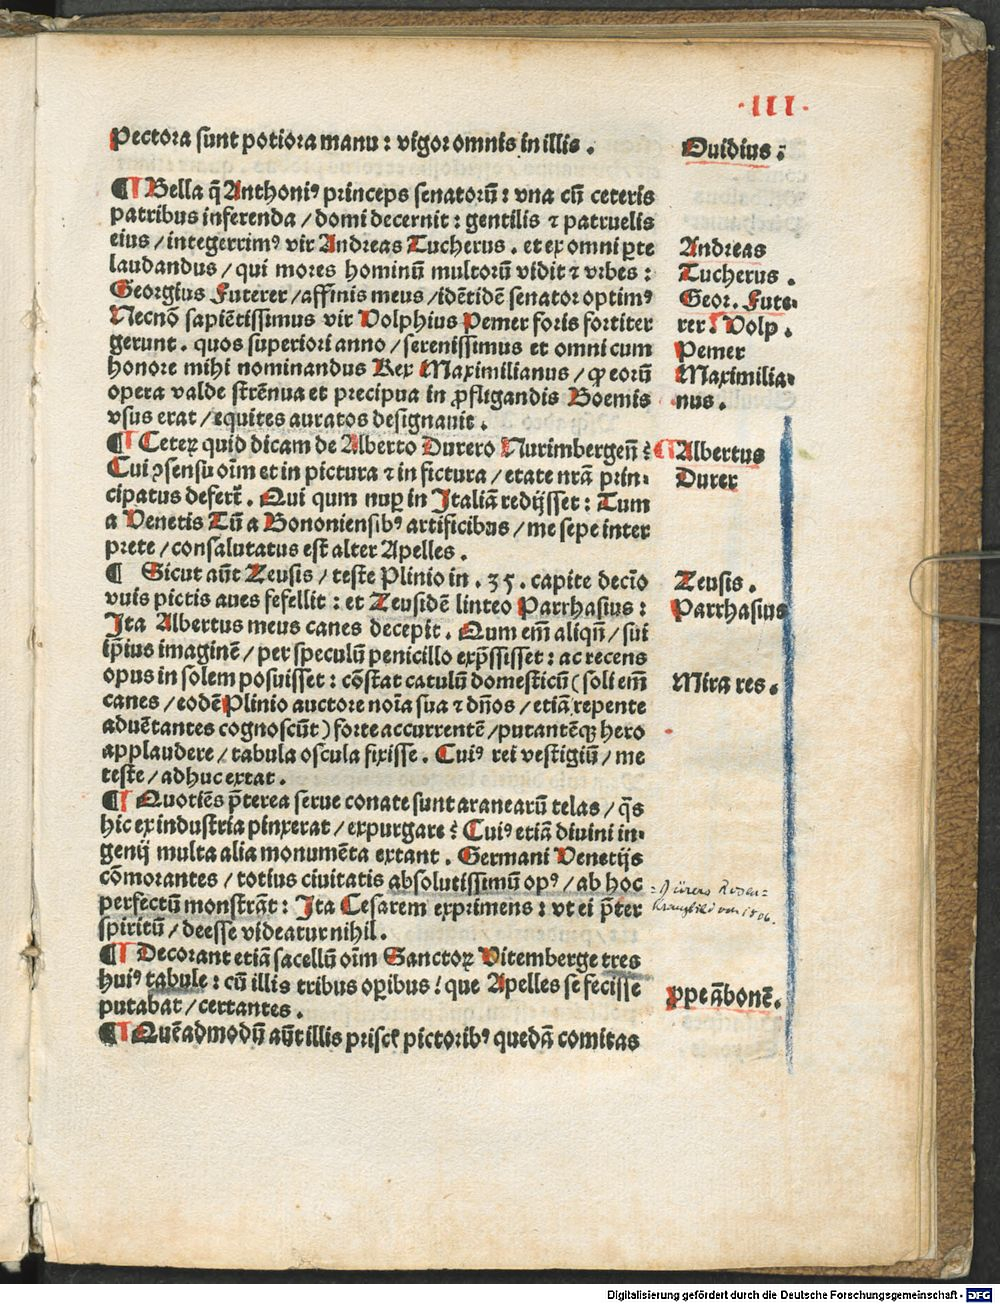 ·III·
Pectora sunt potiora manu: vigor omnis in illis.
Ouidius.
¶ Bella q̃ Anthoniꝰ princeps senatorũ: vna cũ ceteris
patribus inferenda / domi decernit: gentilis ⁊ patruelis
eius / integerrimꝰ vir Andreas Tucherus. et ex omni ꝑte
laudandus / qui mores hominũ multorũ vidit ⁊ vrbes:
Georgius Futerer / affinis meus / idẽtidẽ senator optimꝰ
Necnõ sapiẽtissimus vir Volphius Pemer foris fortiter
gerunt. quos superiori anno / serenissimus et omni cum
honore mihi nominandus Rex Maximilianus / ꝙ eorũ
opera valde strẽnua et precipua in ꝓfligandis Boemis
vsus erat / equites auratos designauit.
Andreas
Tucherus.
Geor. Fute-
rer. Volp.
Pemer
Maximilia-
nus.
¶ Ceterꝝ quid dicam de Alberto Durero Nurimbergeñ?
Cui ꝯsensu oĩm et in pictura ⁊ in fictura / etate nrã prin-
cipatus defert̃. Qui qum nuꝑ in Italiã redijsset: Tum
a Venetis Tũ a Bononiensibꝰ artificibus / me sepe inter
prete / consalutatus est alter Apelles.
Albertus
Durer
¶ Sicut aũt Zeusis / teste Plinio in .35. capite decĩo
vuis pictis aues fefellit: et Zeusidẽ linteo Parrhasius:
Ita Albertus meus canes decepit. Qum em̃ aliqñ / sui
ip̃ius imaginẽ / per speculũ penicillo exp̃ssisset: ac recens
opus in solem posuisset: cõstat catulũ domesticũ (soli em̃
canes / eodẽ Plinio auctore noĩa sua ⁊ dños / etiã repente
aduẽtantes cognoscũt) forte accurrentẽ / putantẽqꝫ hero
applaudere / tabula oscula fixisse. Cuiꝰ rei vestigiũ / me
teste / adhuc extat.
Zeusis.
Parrhasius
Mira res.
¶ Quotiẽs p̃terea serue conate sunt aranearũ telas / q̃s
hic ex industria pinxerat / expurgare? Cuiꝰ etiã diuini in-
genij multa alia monumẽta extant. Germani Venetijs
cõmorantes / totius ciuitatis absolutissimũ opꝰ / ab hoc
perfectũ monstrãt: Ita Cesarem exprimens: vt ei p̃ter
spiritũ / deesse videatur nihil.
= Dürers Rosen=
kranzbild von 1506.
¶ Decorant etiã sacellũ oĩm Sanctoꝝ Vitemberge tres
huiꝰ tabule: cũ illis tribus oꝑibus! que Apelles se fecisse
putabat / certantes.
¶ Quẽadmodũ aũt illis priscꝭ pictoribꝰ quedã comitas
Digitalisierung gefördert durch die Deutsche Forschungsgemeinschaft - DFG